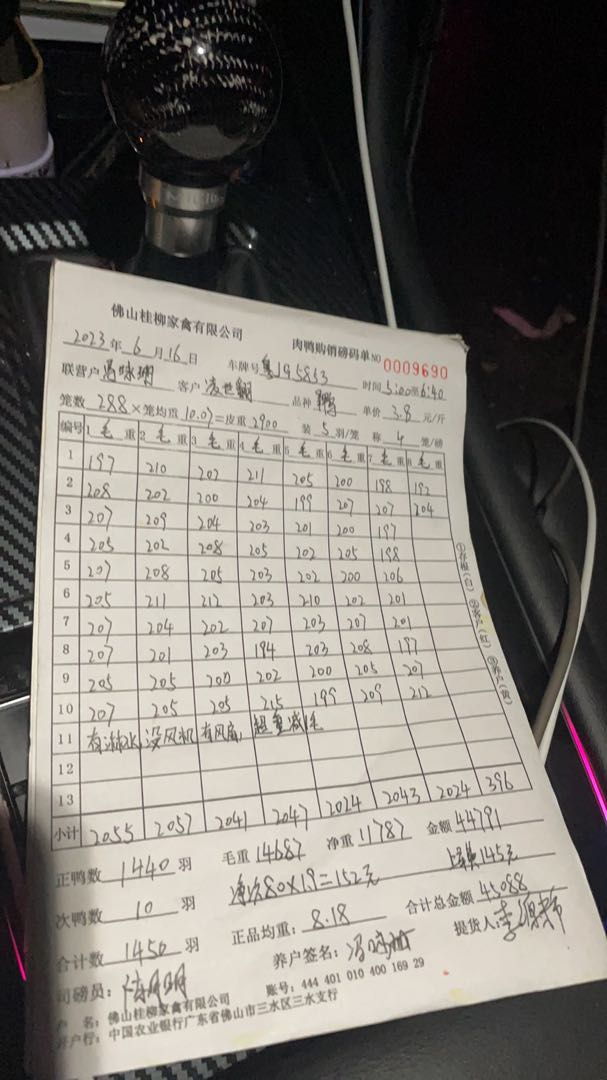 佛山桂柳家禽有限公司
肉鸭购销磅码单 NO 0009690
2023年 6 月 16 日 车牌号 粤195853 时间 5:00至6:40
联营户 客户 品种 鸭 单价 3.8 元/斤
笼数 288 ×笼均重 10.07 =皮重 2900 装 5 羽/笼 称 4 笼/磅
编号 1 毛 重 2 毛 重 3 毛 重 4 毛 重 5 毛 重 6 毛 重 7 毛 重 8 毛 重
1 197 210 202 211 205 200 198 192
2 208 202 200 204 199 207 207 204
3 207 209 204 203 201 200 197
4 205 202 208 205 202 205 198
5 207 208 205 203 202 200 206
6 205 211 212 203 210 202 201
7 207 204 202 207 203 207 201
8 207 201 203 194 203 208 197
9 205 205 200 202 200 205 207
10 207 205 205 215 199 209 212
11 有淋水 没风机 有风扇 超重减毛
12
13
小计 2055 2057 2041 2047 2024 2043 2024 396
①存根(白) ②客户(红) ③养户(黄)
正鸭数 1440 羽 毛重 14687 净重 11787 金额 44791
次鸭数 10 羽 80×19=152元 145元
合计数 1450 羽 正品均重: 8.18 合计总金额 45088
司磅员: 养户签名: 提货人:
户 名: 佛山桂柳家禽有限公司 账号: 444 401 010 400 169 29
开户行: 中国农业银行广东省佛山市三水区三水支行